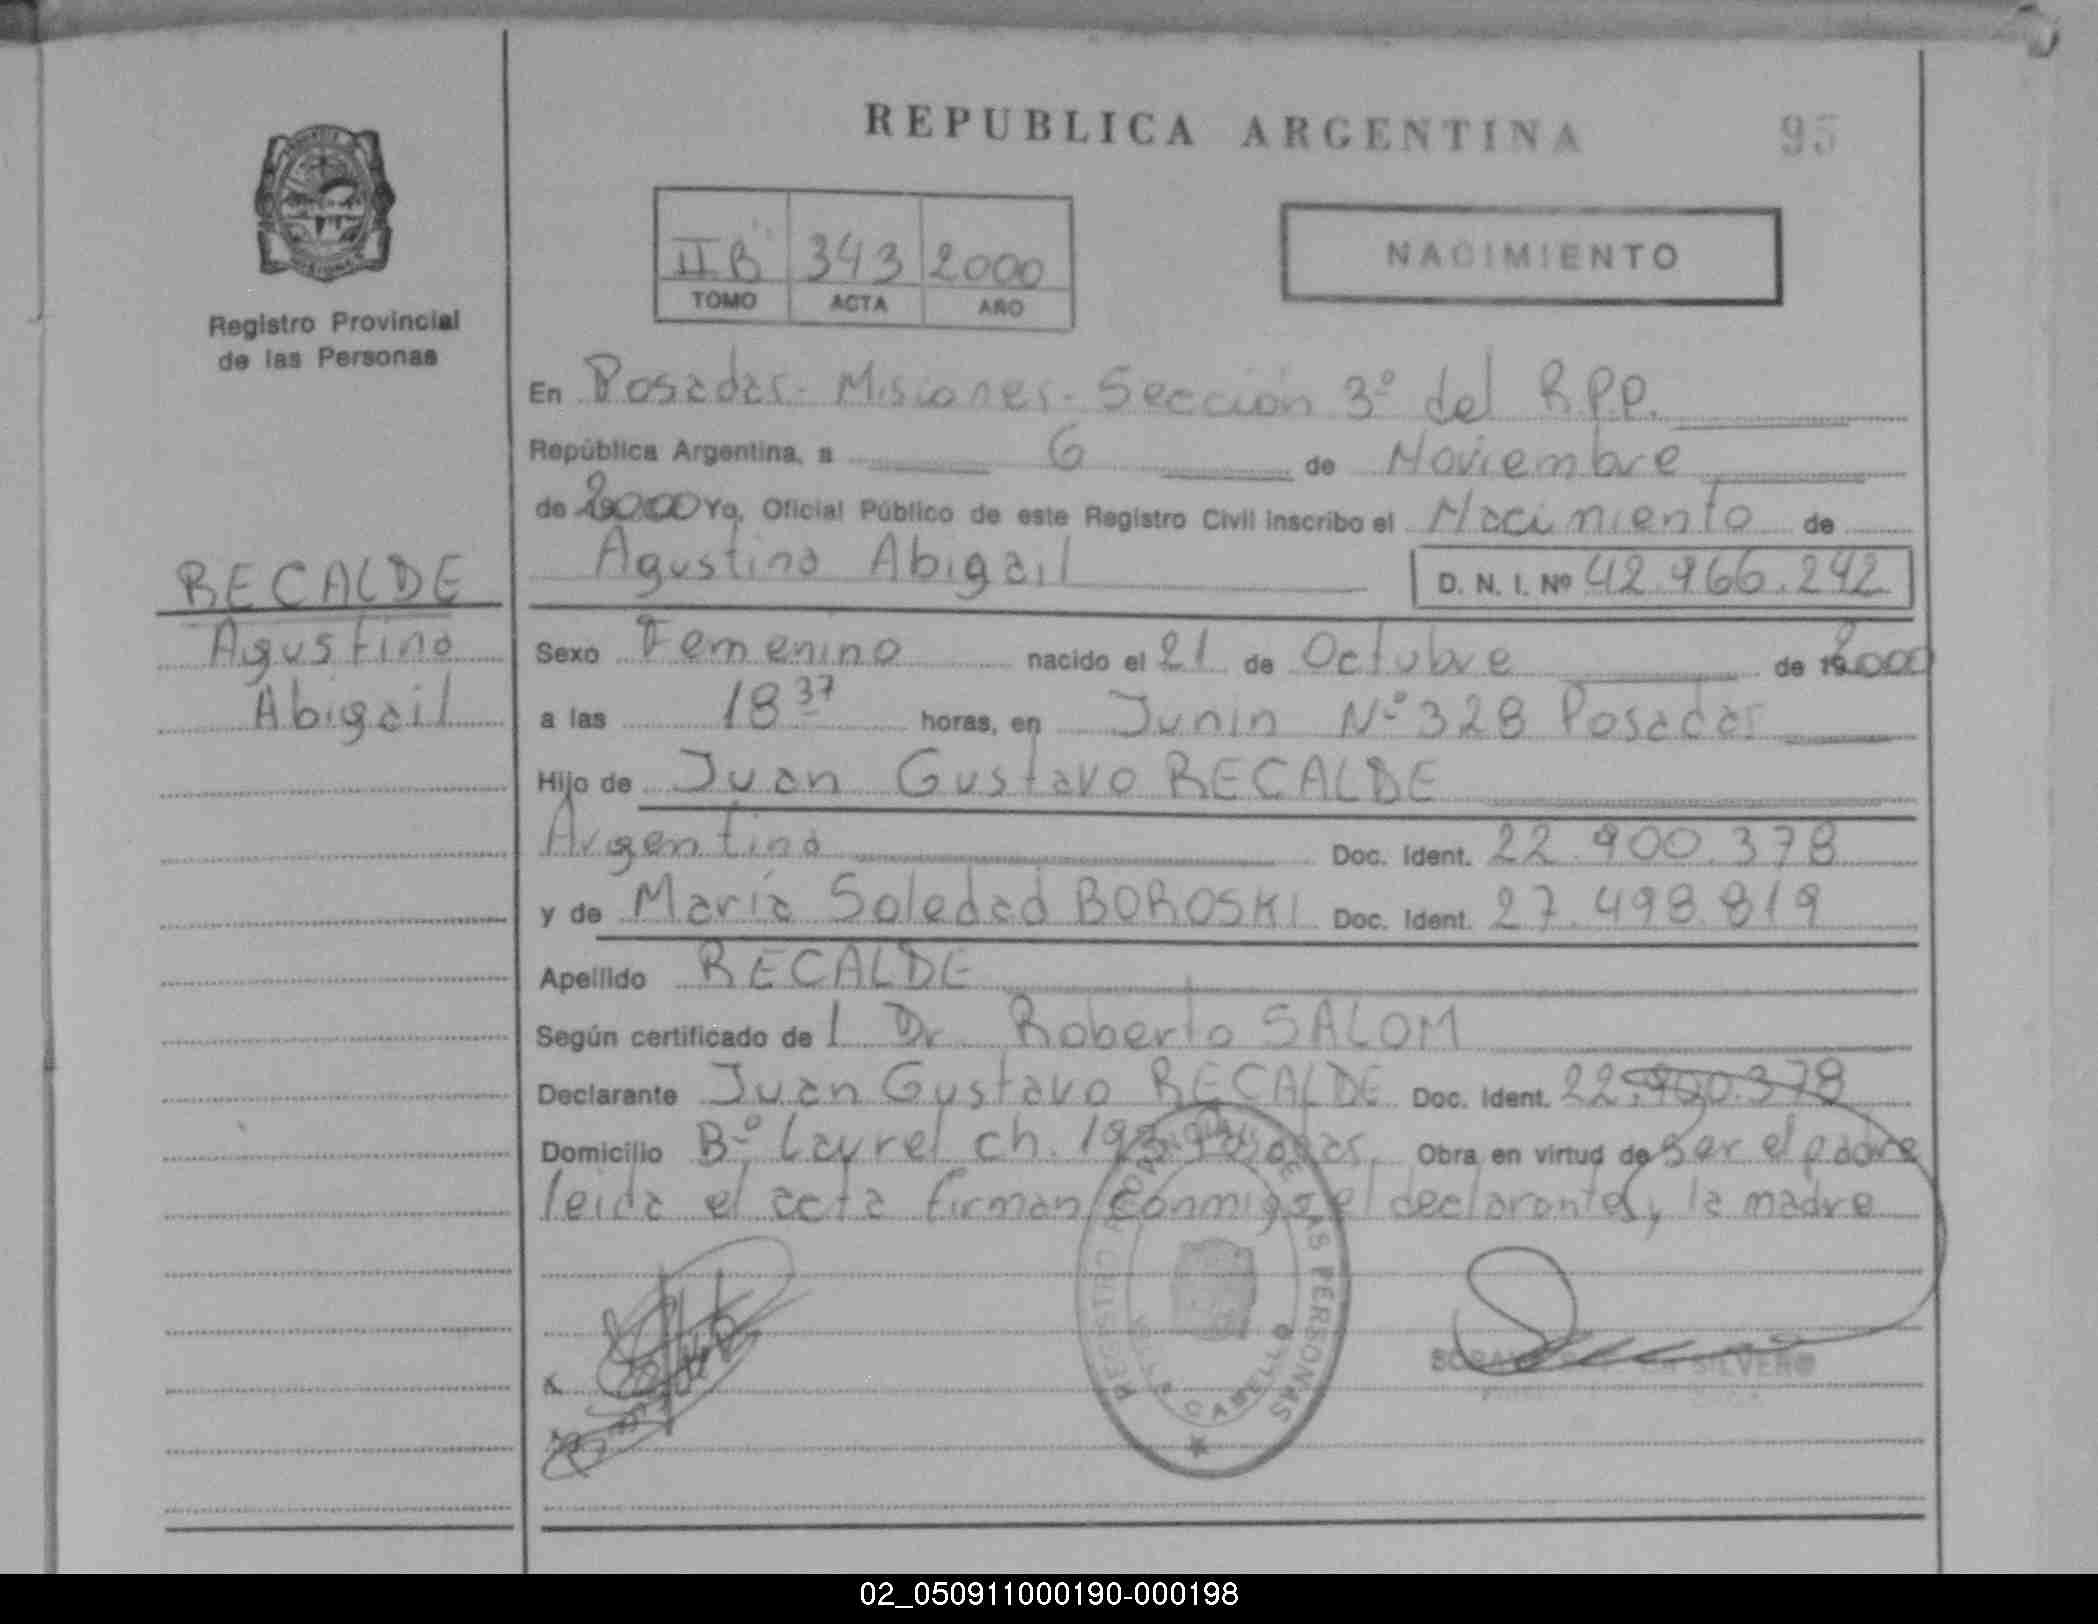 REPUBLICA ARGENTINA
95
IIB 343 2000
TOMO ACTA AÑO
NACIMIENTO
Registro Provincial
de las Personas
En Posadas - Misiones - Sección 3º del R.P.P.
República Argentina, a 6 de Noviembre
de 2000 Yo, Oficial Público de este Registro Civil inscribo el Nacimiento de
Agustina Abigail D. N. I. Nº 42.966.242
RECALDE
Agustina
Abigail
Sexo Femenino nacido el 21 de Octubre de 2000
a las 18 37 horas, en Junin Nº 328 Posadas
Hijo de Juan Gustavo RECALDE
Argentina Doc. Ident. 22.900.378
y de María Soledad BOROSKI Doc. Ident. 27.498.819
Apellido RECALDE
Según certificado de l Dr Roberto SALOM
Declarante Juan Gustavo RECALDE Doc. Ident. 22.900.378
Domicilio Bº Laurel ch. 193 Posadas. Obra en virtud de Ser el padre
leida el acta firman conmigo el declarante y la madre
REGISTRO PROVINCIAL DE LAS PERSONAS
CABELLO
SILVERO
02_050911000190-000198